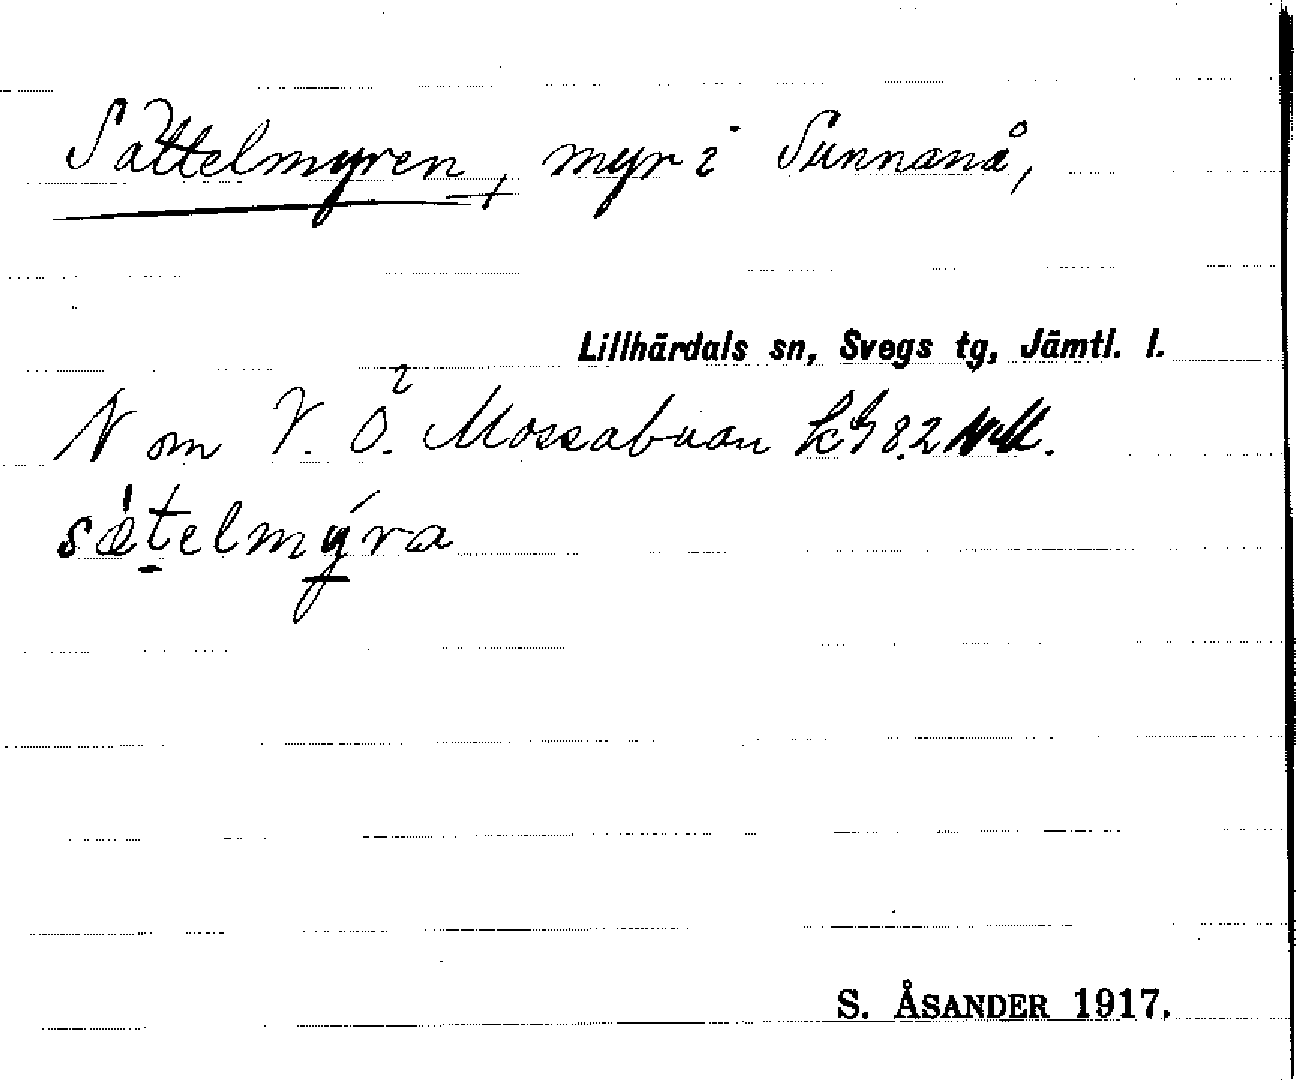 Sattelmyren, myr i Sunnanå,
Lillhärdals sn, Svegs tg, Jämtl. l.
N om V. Ö. Mossabuan
satelmyra
S. ÅSANDER 1917.